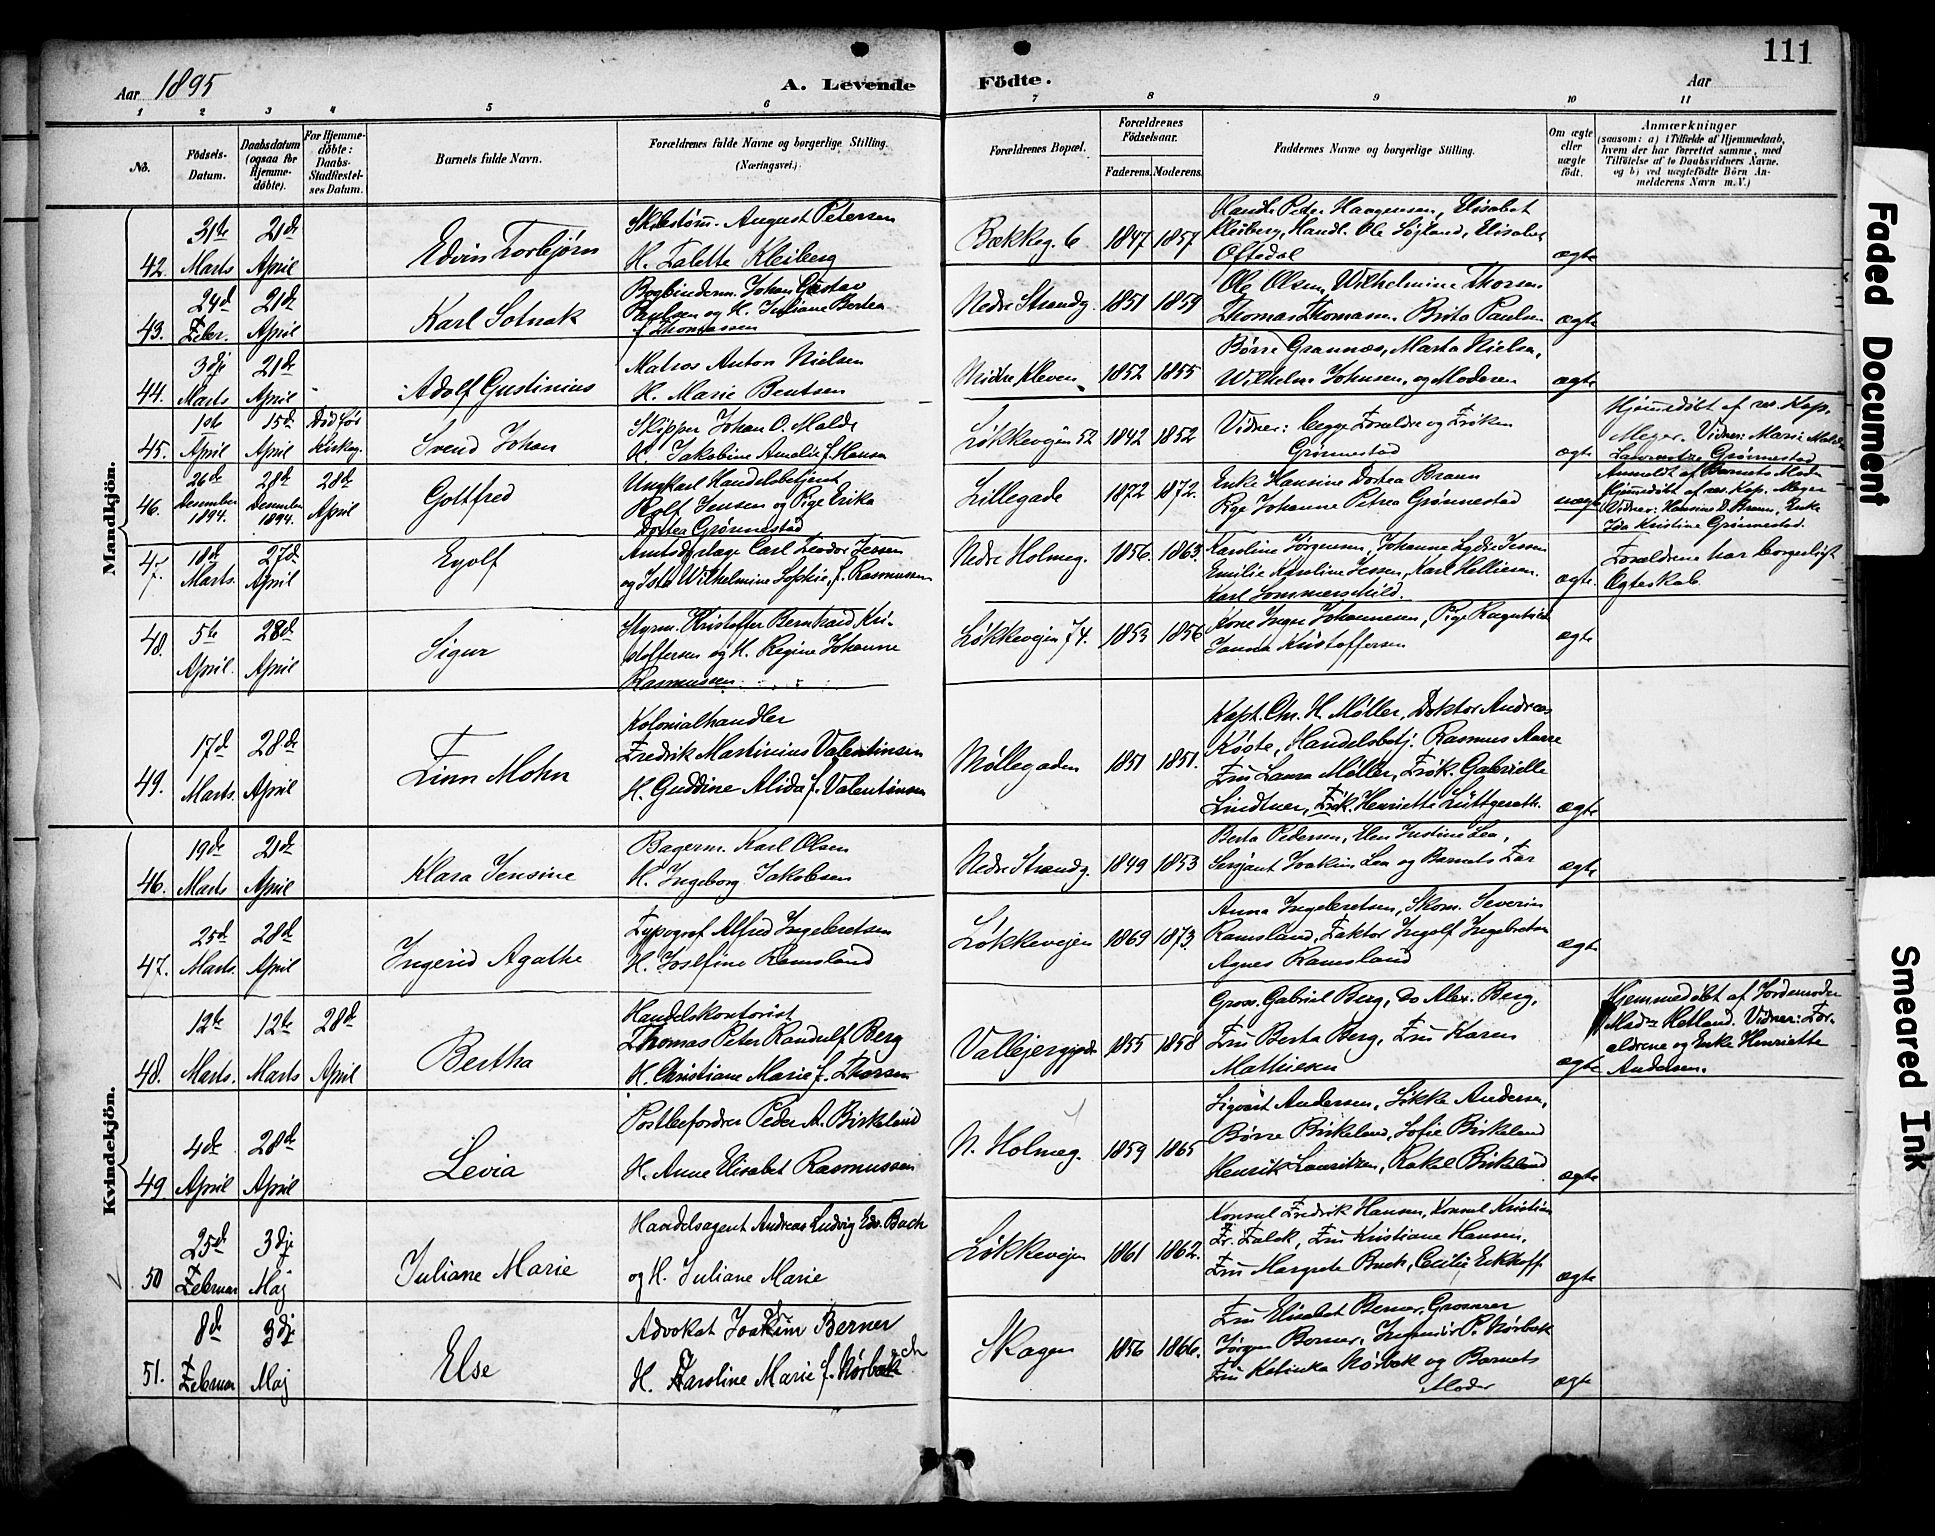 111
Aar 1895
A. Levende Födte.
Aar
1 2 3 4 5 6 7 8 9 10 11
No.
Födsels-Datum.
Daabsdatum (ogsaa for Hjemme-döbte).
For Hjemme-döbte: Daabs-Stadfæstel-ses Datum.
Barnets fulde Navn.
Forældrenes fulde Navne og borgerlige Stilling. (Næringsvei.)
Forældrenes Bopæl.
Forældrenes Födselsaar.
Faderens. Moderens.
Faddernes Navne og borgerlige Stilling.
Om ægte eller uægte födt.
Anmærkninger
(saasom: a) i Tilfælde af Hjemmedaab,
hvem der har forrettet samme, med
Tilföielse af to Daabsvidners Navne.
og b) ved uægtefödte Börn An-
melderens Navn m.V.)
Mandkjön.
42. 31te Marts 21de April
Edvin Torbjørn
August Petersen
H. Talette Kleiberg
Bækkeg. 6 1847 1857
Handl. Peter Haagensen, Elisabet
Kleiberg, Handl. Ole Søgland, Elisabet
Oftedal
ægte
43. 24de Feber. 21de April
Karl Sotnak
Bogbinderm. Johan Gustav
Paulsen og H. Juliane Bertea
f. Thomassen
Nedre Strandg. 1851 1859
Ole Olsen, Wilhelmine Thorsen
Thomas Thomasen. Brita Paulsen
ægte
44. 3dje Marts 21de April
Adolf Gustinius
Matros Anton Nielsen
H. Marie Bentsen
Midtre Kleven 1852 1855
Børre Grannæs, Marta Nielsen,
Wilhelm Johnsen, og Moderen
ægte
45. 1ste April 15de April Død før Kirkeg.
Svend Johan
Skipper Johan O. Malde
H. Jakobine Amalie f. Hansen
Løkkevejen 52 1842 1852
Vidner: begge Forældre og Frøken
Grønnestad
ægte
Hjemmedøbt af res. Kap.
Meyer. Vidner: Marie Malde
Laurentze Grønnestad
46. 26de Desember 1894. 28de Desember 1894. 28de April
Gottfred
Ungkarl Handelsbetjent
Rolf Jensen og Pige Erika
Dortea Grønnestad
Lillegade 1872 1872.
Enke Hansine Dortea Bruun
Pige Johanne Petrea Grønnestad
uægte
Anmeldt af Barnets Moder
Hjemmedøbt af res. Kap. Meyer
Vidner: Hansine D. Bruun, Enke
Ida Kristine Grønnestad.
47. 18de Marts. 27de April
Eyolf
Carl Teodor Jessen
og Wilhelmine Sophie, f. Rasmussen
Nedre Holmeg. 1856. 1863.
Karoline Jørgensen, Johanne Lydie Jessen
Emilie Karoline Jessen, Karl Kielliesen.
Karl Sommerschild.
ægte.
Forældrene har borgerligt
Ægteskab
48. 5te April. 28de April
Sigur
Styrm. Kristoffer Bernhard Kri-
stoffersen og H. Regine Johanne
Rasmussen
Løkkevejen 74. 1853 1856
Kone Inger Johannesen, Pige
Janna Kristoffersen
ægte
49. 17de Marts. 28de April
Finn Mohn
Kolonialhandler
Fredrik Martinius Valentinsen
H. Guddine Alida f. Valentinsen
Møllegaden 1851 1851.
Kapt. Chr. H. Møller, Doktor Andreas
Køste, Handelsbetj. Rasmus Aarre
Fru Laura Møller, Frøk. Gabrielle
Lindtner, Frøk. Henriette Lüttgerath.
ægte
Kvindekjön.
46. 19de Marts 21de April
Klara Jensine
Bagerm. Karl Olsen
H. Ingeborg Jakobsen
Nedre Strandg. 1849 1853
Berta Pedersen, Elen Justine Lea,
Serjant Joakim Lea og Barnets Far
ægte
47. 25de Marts. 28de April
Ingerid Agathe
Typograf Alfred Ingebretsen
H. Josefine Ramsland
Løkkevejen 1869 1873.
Anna Ingebretsen, Skom. Severin
Ramsland, Faktor Ingolf Ingebretsen
Agnes Ramsland
ægte
48. 12te Marts. 12te Marts 28de April
Bertha
Handelskontorist
Thomas Peter Randulf Berg
H. Christiane Marie f. Thorsen
1855 1858
Gross. Gabriel Berg, Do Alex. Berg,
Fru Berta Berg, Fru Karen
Mathiesen
ægte
Hjemmedøbt af Jordemoder
Mad. Hetland. Vidner: For-
ældrene og Enke Henriette
Andersen.
49 4de April 28de April
Levia
Postbefordrer Peder A. Birkeland
H. Anne Elisabet Rasmussen
N. Holmeg. 1859 1865
Sigvart Andersen, Sikke Andersen,
Børre Birkeland, Sofie Birkeland
Henrik Lauritzen, Rakel Birkeland
ægte
50 25de Februar 3dje Maj
Juliane Marie
Handelsagent Andreas Ludvig Edv. Bach
og H. Juliane Marie
Løkkevejen 1861 1862.
Konsul Fredrik Hansen, Konsul Kristian
Fr. Falck, Fru Kristiane Hansen,
Fru Margrete Buch, Cecilie Eckhoff
ægte
51. 8de Februar 3dje Maj
Else
Advokat Joakim Berner
H. Karoline Marie f. Nørbech
Skagen 1856 1866.
Fru Elisabet Berner, Grosserer
Jørgen Berner, Ingeniør P. Nørbek
Fru Katinka Nørbek og Barnets
Moder
ægte
Faded Document
Smeared Ink